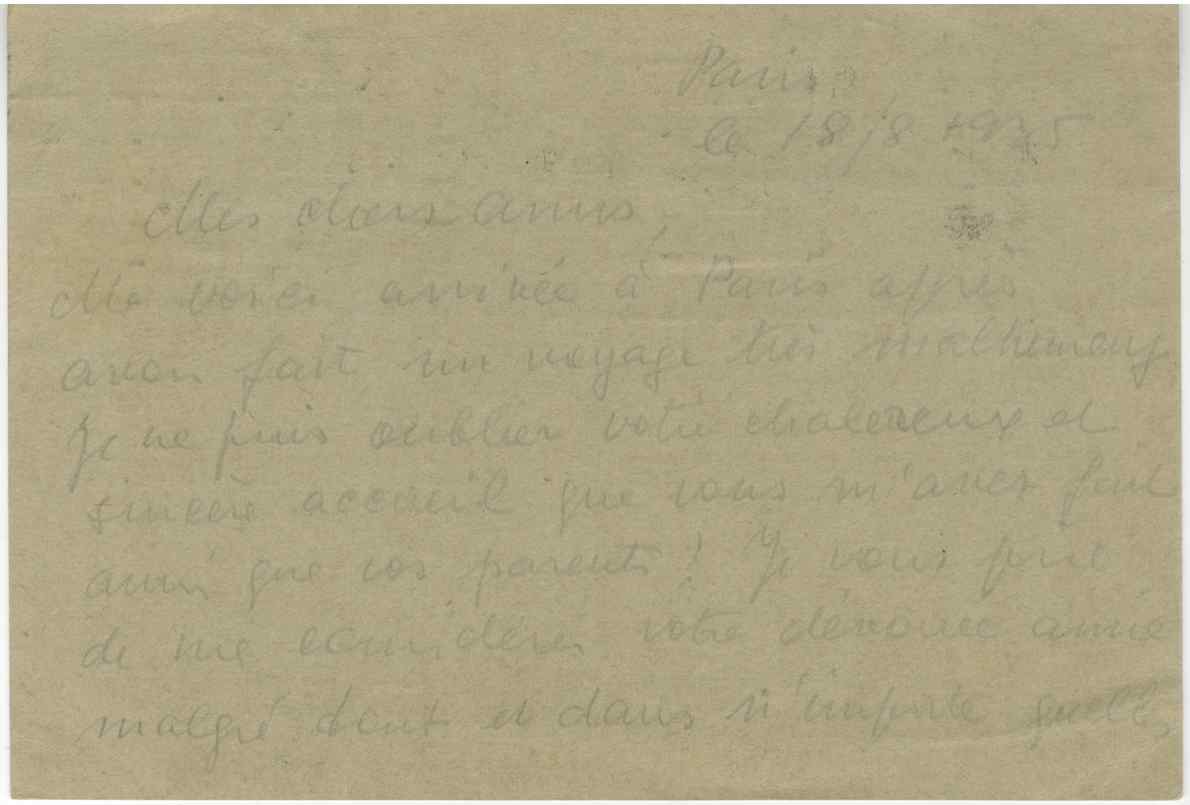 Paris
le 18/8 1945
Mes chers amis,
Me voici arrivée à Paris après
avoir fait un voyage très malheureux
Je ne puis oublier votre chalereux et
sincère accueil que vous m'avez fait
ainsi que vos parents! Je vous prie
de me considérer votre dévouée amie
malgré tout et dans n'importe quelle